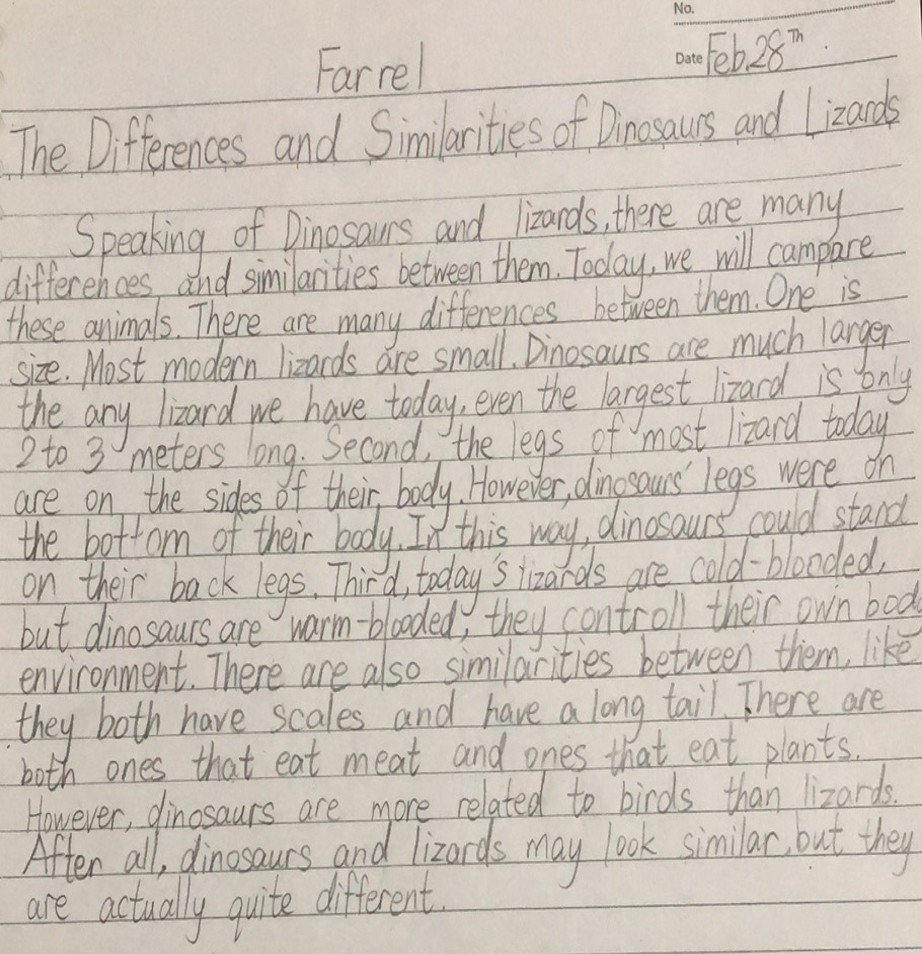 No.
Date Feb.28Th.
Farrel
The Differences and Similarities of Dinosaurs and Lizards
Speaking of Dinosaurs and lizards, there are many
differences, and similarities between them. Today, we will campare
these animals. There are many differences between them. One is
size. Most modern lizards are small. Dinosaurs are much larger
the any lizard we have today, even the largest lizard is only
2 to 3 meters long. Second, the legs of most lizard today
are on the sides of their body. However, dinosaurs' legs were on
the bottom of their body. In this way, dinosaurs could stand
on their back legs. Third, today's lizards are cold-blooded,
but dinosaurs are warm-blooded, they controll their own bod
environment. There are also similarities between them, like
they both have scales and have a long tail. There are
both ones that eat meat and ones that eat plants.
However, dinosaurs are more related to birds than lizards.
After all, dinosaurs and lizards may look similar, but they
are actually quite different.